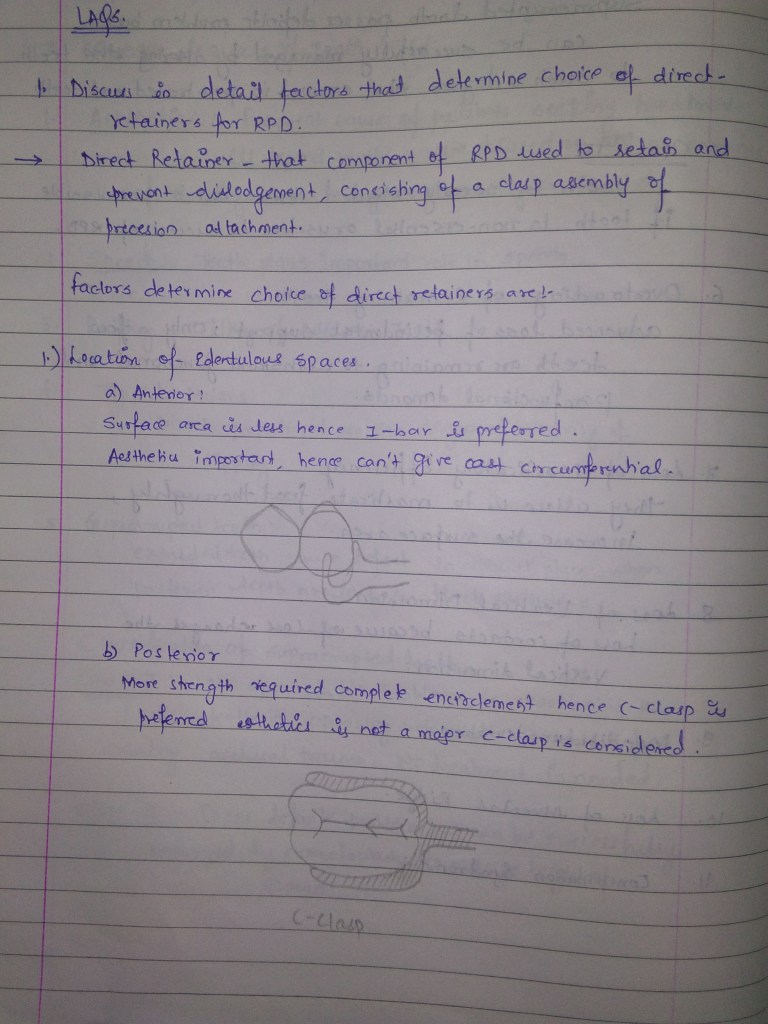 LAQs.
1. Discuss in detail factors that determine choice of direct-
retainers for RPD.
→ Direct Retainer - that component of RPD used to retain and
prevent dislodgement, consisting of a clasp assembly of
precesion attachment.
factors determine choice of direct retainers are!-
1.) Location of Edentulous spaces.
a) Anterior:
Surface area is less hence I-bar is preferred.
Aesthetics important, hence can't give cast circumferential.
b) Posterior
More strength required complete encirclement hence C-clasp is
preferred esthetics is not a major C-clasp is considered.
C-Clasp